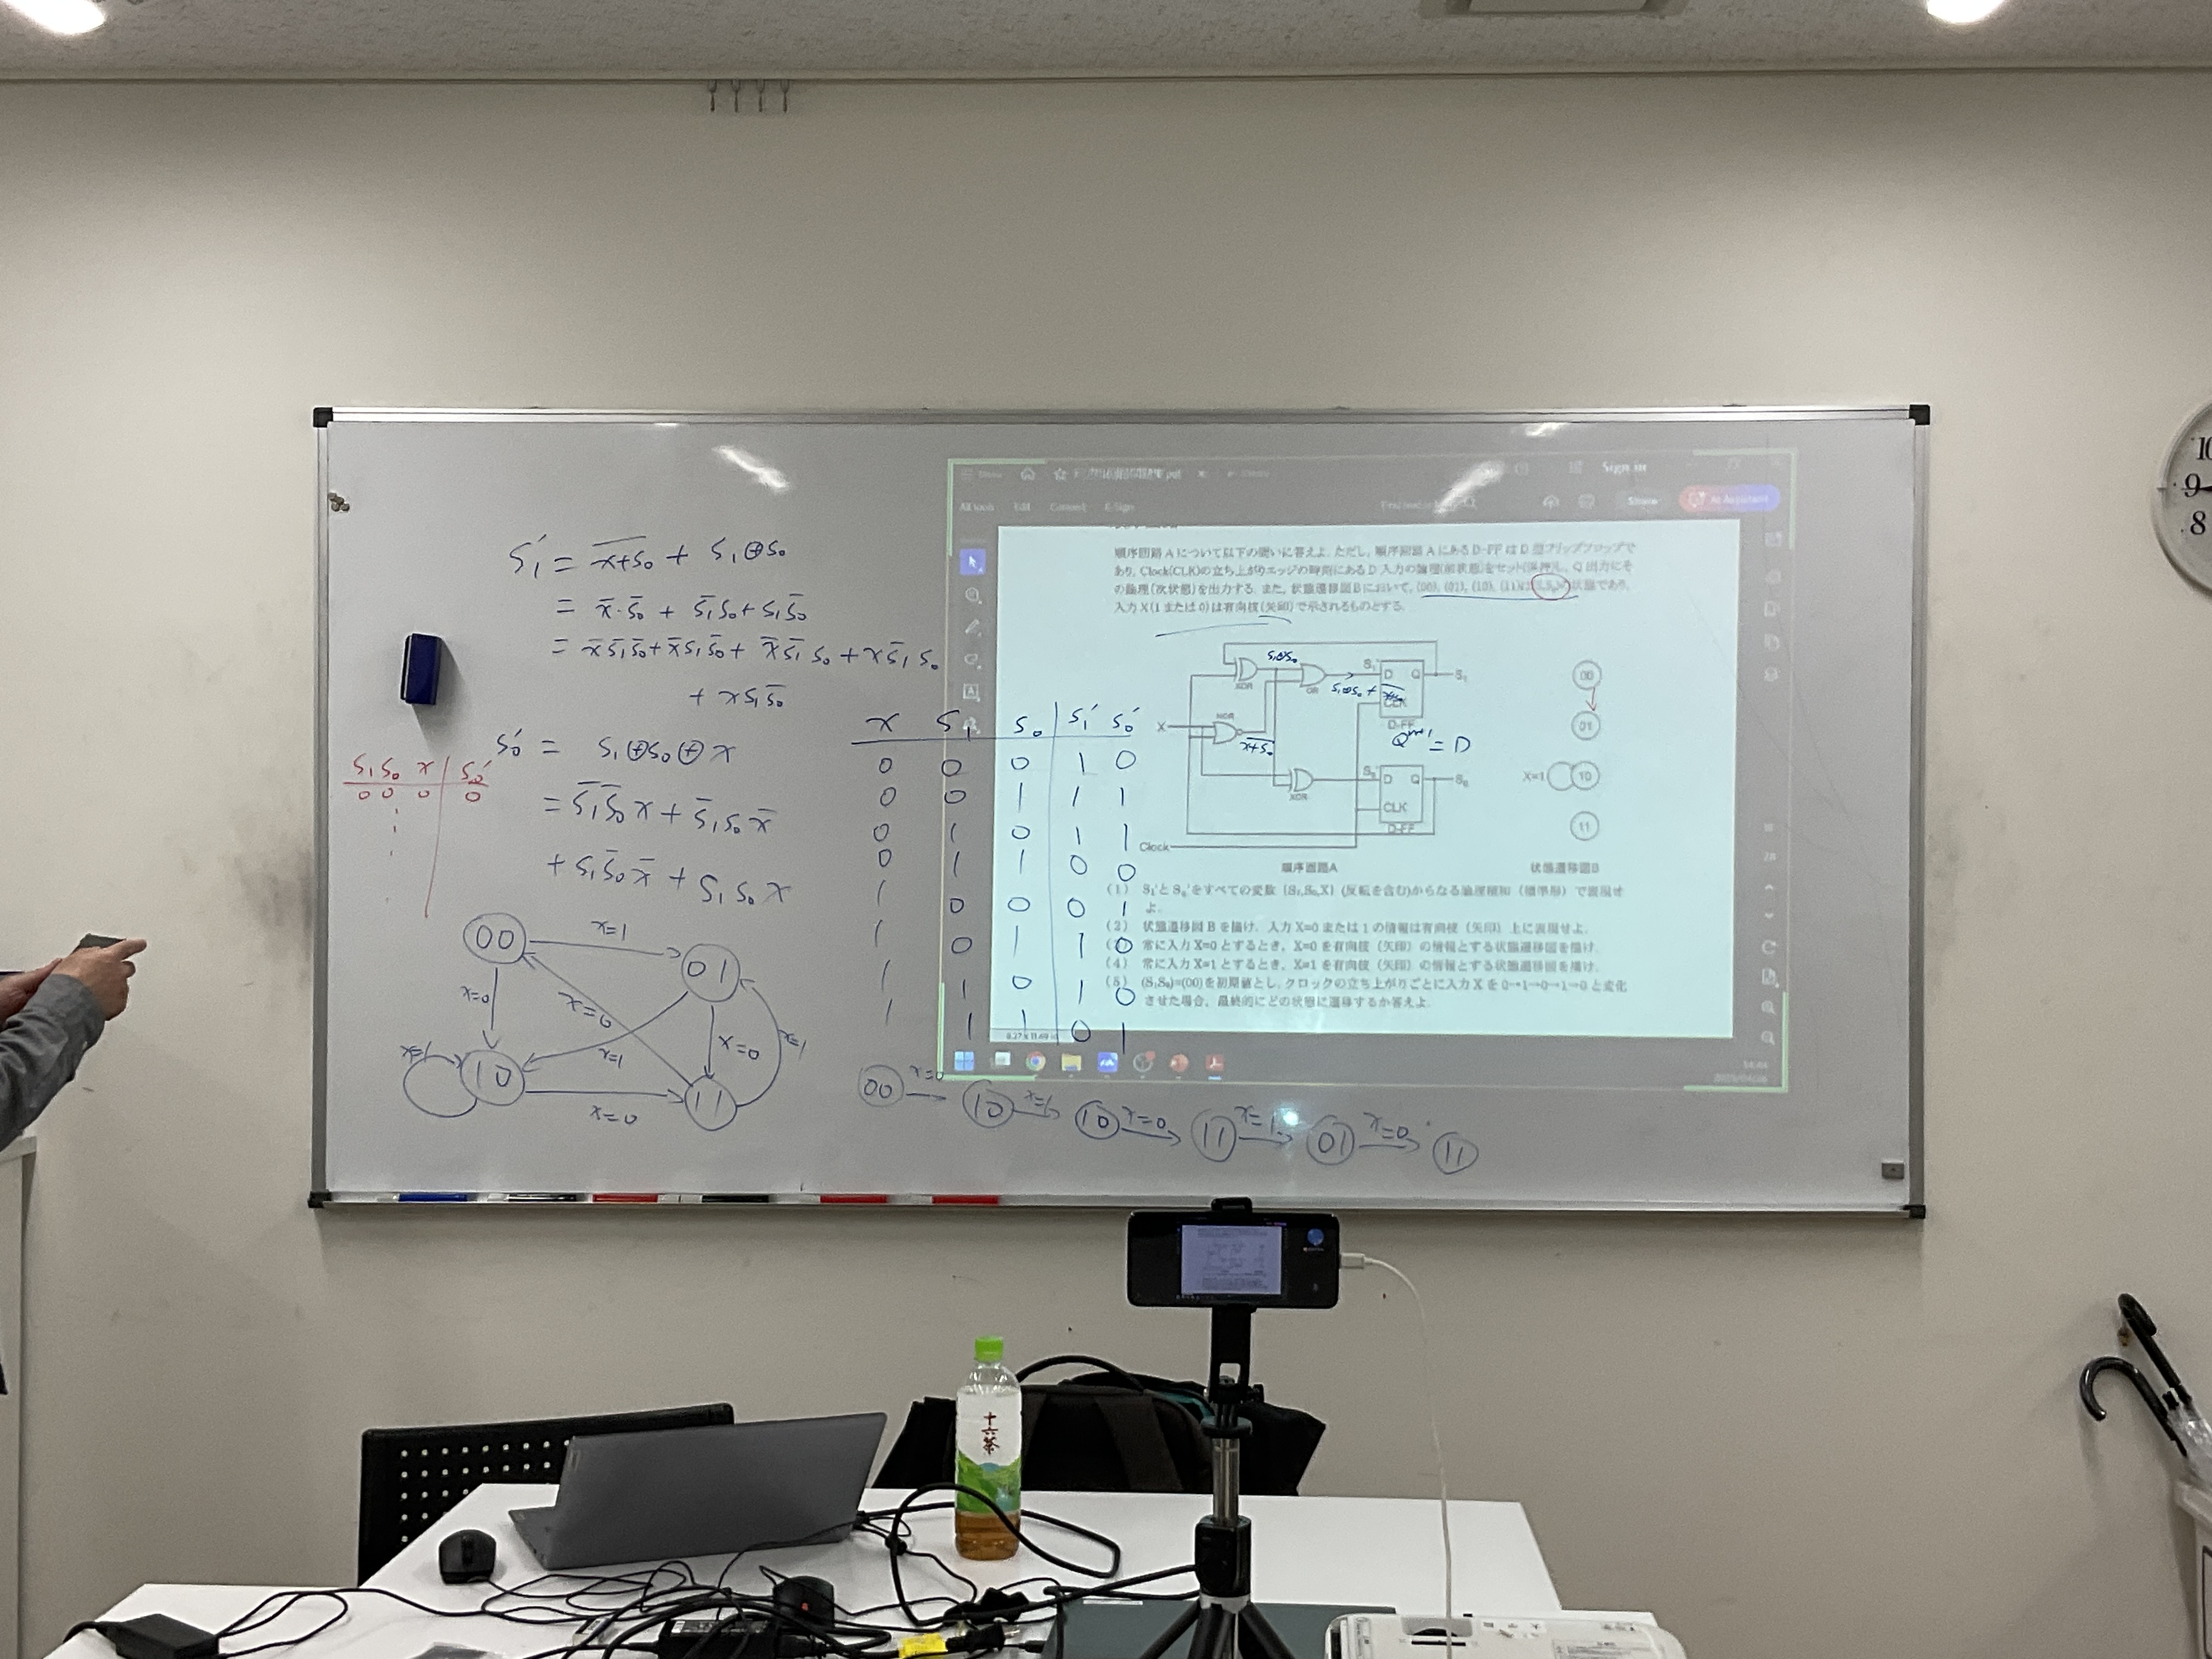 S₁' = \overline{x+S₀} + S₁⊕S₀
= x̄·S̄₀ + S̄₁S₀ + S₁S̄₀
= x̄S̄₁S̄₀ + x̄S₁S̄₀ + x̄S̄₁S₀ + xS̄₁S₀
+ xS₁S̄₀
S₀' = S₁⊕S₀⊕x
= S̄₁S̄₀x + S̄₁S₀x̄
+ S₁S̄₀x̄ + S₁S₀x
S₁ S₀ x | S₀'
0 0 0 | 0
00
x=1
01
x=0
x=0
x=1
x=0
x=1
x=1
10
x=0
11
x S₁ S₀ | S₁' S₀'
0 0 0 1 0
0 0 1 1 1
0 1 0 1 1
0 1 1 0 0
1 0 0 0 1
1 0 1 1 0
1 1 0 1 0
1 1 1 0 1
00 x=0 → 10 x=1 → 10 x=0 → 11 x=1 → 01 x=0 → 11
Sign in
All tools Edit Convert E-Sign
Share AI Assistant
順序回路Aについて以下の問いに答えよ. ただし, 順序回路AにあるD-FFはD型フリップフロップで
あり, Clock(CLK)の立ち上がりエッジの時刻にあるD入力の論理(前状態)をセット(保持)し, Q出力にそ
の論理(次状態)を出力する. また, 状態遷移図Bにおいて, (00), (01), (10), (11)は 状態であり,
入力X(1または0)は有向枝(矢印)で示されるものとする.
S₁⊕S₀
XOR
OR
S₁'
D Q
S₁
S₁⊕S₀ + \overline{x+S₀}
CLK
D-FF
X
NOR
\overline{x+S₀}
Qⁿ⁺¹ = D
XOR
S₀'
D Q
S₀
CLK
D-FF
Clock
順序回路A
00
01
X=1
10
11
状態遷移図B
(1) S₁'とS₀'をすべての変数{S₁,S₀,X}(反転を含む)からなる論理積和(標準形)で表現せ
よ.
(2) 状態遷移図Bを描け. 入力X=0または1の情報は有向枝(矢印)上に表現せよ.
常に入力X=0とするとき, X=0を有向枝(矢印)の情報とする状態遷移図を描け.
(4) 常に入力X=1とするとき, X=1を有向枝(矢印)の情報とする状態遷移図を描け.
(5) (S₁S₀)=(00)を初期値とし, クロックの立ち上がりごとに入力Xを0→1→0→1→0と変化
させた場合, 最終的にどの状態に遷移するか答えよ.
8.27 x 11.69 in
10
9
8
十六茶